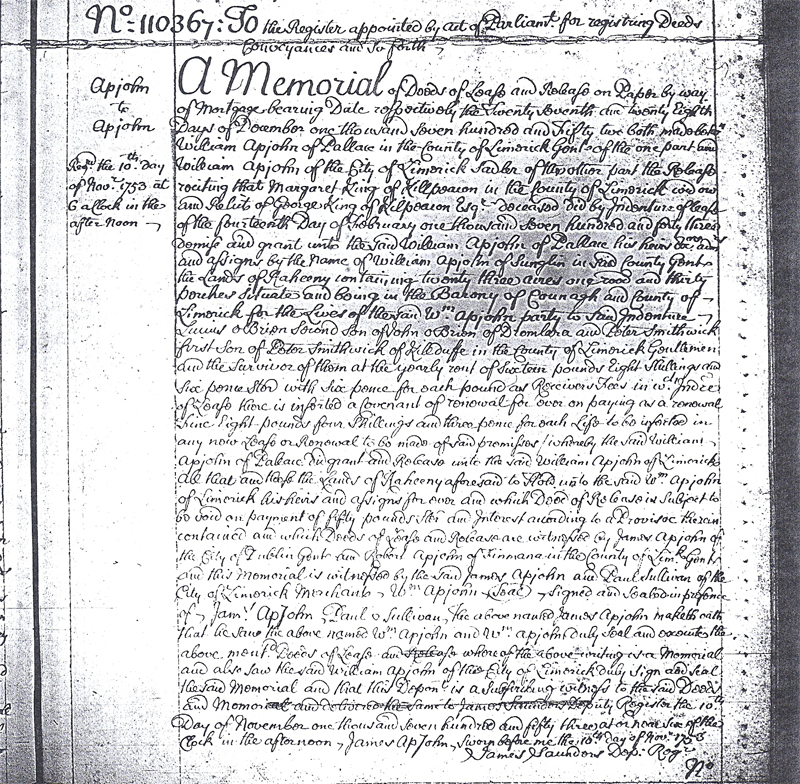 No. 110367: To the Register appointed by act of Parliamt. for registring Deeds
Conveyances and so forth
Apjohn
to
Apjohn
Regd. the 10th. day
of Novr. 1753 at
6 a Clock in the
after Noon
A Memorial of Deeds of Lease and Release on Paper by way
of Mortgage bearing Date respectively the Twenty Seventh and twenty Eighth
Days of December one thousand Seven hundred and Fifty two both made betwn
William Apjohn of Pallace in the County of Limerick Gent. of the one part and
William Apjohn of the City of Limerick Sadler of the other part the Release
reciting that Margaret King of Killpeacon in the County of Limerick widow
and Relict of George King of Kilpeacon Esqr. deceased did by Indenture of lease
of the fourteenth Day of February one thousand Seven hundred and forty three
demise and grant unto the said William Apjohn of Pallace his heirs
and assigns by the Name of William Apjohn of Sunglin in said County Gent.
the Lands of Raheeny containing twenty three acres one rood and thirty
perches Situate and being in the Barony of Counagh and County of
Limerick for the Lives of the said Wm. Apjohn party to said Indenture
Lucius o'Brien Second Son of John o'Brien of Dromland and Peter Smithwick
first Son of Peter Smithwick of Killduffe in the County of Limerick Gentlemen
and the Survivor of them at the yearly rent of Sixteen pounds Eight Shillings and
Six pence Ster with Six pence for each pound as Receivers Fees in wch. Indre
of Lease there is inserted a Covenant of renewal for ever on paying as a renewal
Fine Eight pounds four Shillings and three pence for each Life to be inserted in
any new Lease or Renewal to be made of said premisses whereby the said William
Apjohn of Palace did grant and Release unto the said William Apjohn of Limerick
All that and those the Lands of Raheeny aforesaid to Hold unto the said Wm Apjohn
of Limerick his heirs and assigns for ever and which Deed of Release is Subject to
be void on payment of fifty pounds Ster and Interest according to a Provisoe therein
contained and which Deeds of Lease and Release are witnessed by James Apjohn of
the City of Dublin Gent and Robert Apjohn of Linnana in the County of Limk. Gent
And this Memorial is witnessed by the said James Apjohn and Paul Sullivan of the
City of Limerick Merchant Wm Apjohn (Seal) Signed and Sealed in presence
of Jams. ApJohn, Paul o Sullivan, the above named James Apjohn maketh oath
that he saw the above named Wm Apjohn and Wm Apjohn duly seal and execute the
above ment. Deeds of Lease and Release whereof the above writing is a Memorial
and also saw the said William Apjohn of the City of Limerick duly sign and seal
the said Memorial and that this Depont. is a Subscribing witness to the said Deeds
and Memorial and delivered the same to James Saunders Deputy Register the 10th
Day of November one thousand and seven hundred and fifty three at or near six of the
Clock in the afternoon, James ApJohn, Sworn before me the 10th. day of Novr. 1753
James Saunders Depr. Regr.
No